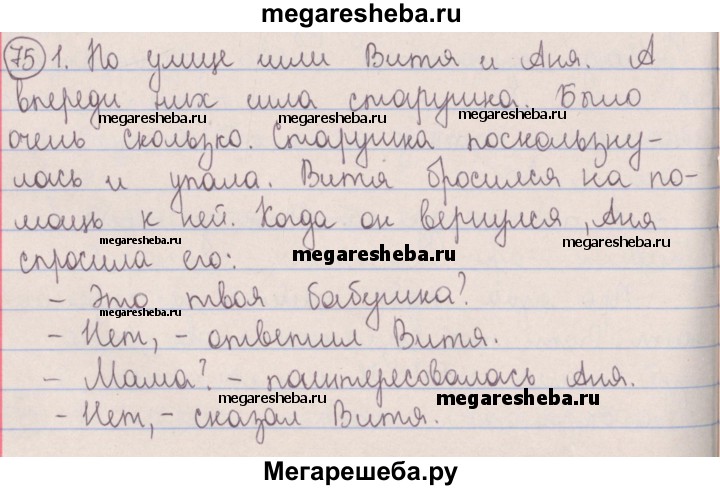 megaresheba.ru
75 1. По улице шли Витя и Аня. А
впереди них шла старушка. Было
megaresheba.ru megaresheba.ru megaresheba.ru
очень скользко. Старушка поскользну-
лась и упала. Витя бросился на по-
мощь к ней. Когда он вернулся, Аня
megaresheba.ru megaresheba.ru megaresheba.ru
спросила его:
- Это твоя бабушка?
- Нет, - ответил Витя.
- Мама? - поинтересовалась Аня.
megaresheba.ru megaresheba.ru
- Нет, - сказал Витя.
Мегарешеба.ру